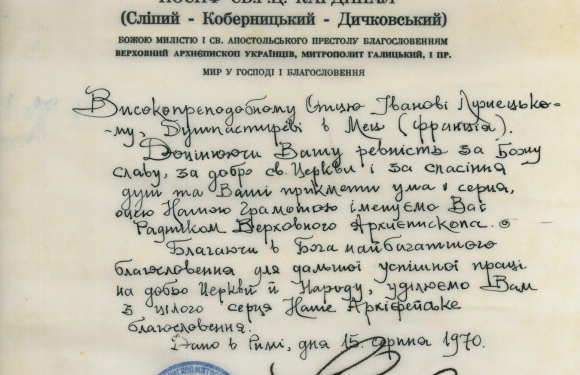 ЙОСИФ СВ.Р.Ц. КАРДИНАЛ
(Сліпий - Коберницький - Дичковський)
БОЖОЮ МИЛІСТЮ І СВ. АПОСТОЛЬСЬКОГО ПРЕСТОЛУ БЛАГОСЛОВЕННЯМ
ВЕРХОВНИЙ АРХИЄПИСКОП УКРАЇНЦІВ, МИТРОПОЛИТ ГАЛИЦЬКИЙ, І ПР.
МИР У ГОСПОДІ І БЛАГОСЛОВЕННЯ
Високопреподобному Отцю Іванові Лучецько-
-му, Душпастиреві в Мец (Франція).
Доцінюючи Вашу ревність за Божу
славу, за добро св. Церкви і за спасіння
душ та Ваші прикмети ума і серця,
оцею Нашою Грамотою іменуємо Вас
Радником Верховного Архиєпископа.
Благаючи в Бога найбагатшого
благословення для дальшої успішної праці
на добро Церкви й Народу, уділюємо Вам
з цілого серця Наше Архієрейське
благословення.
Дано в Римі, дня 15. серпня 1970.